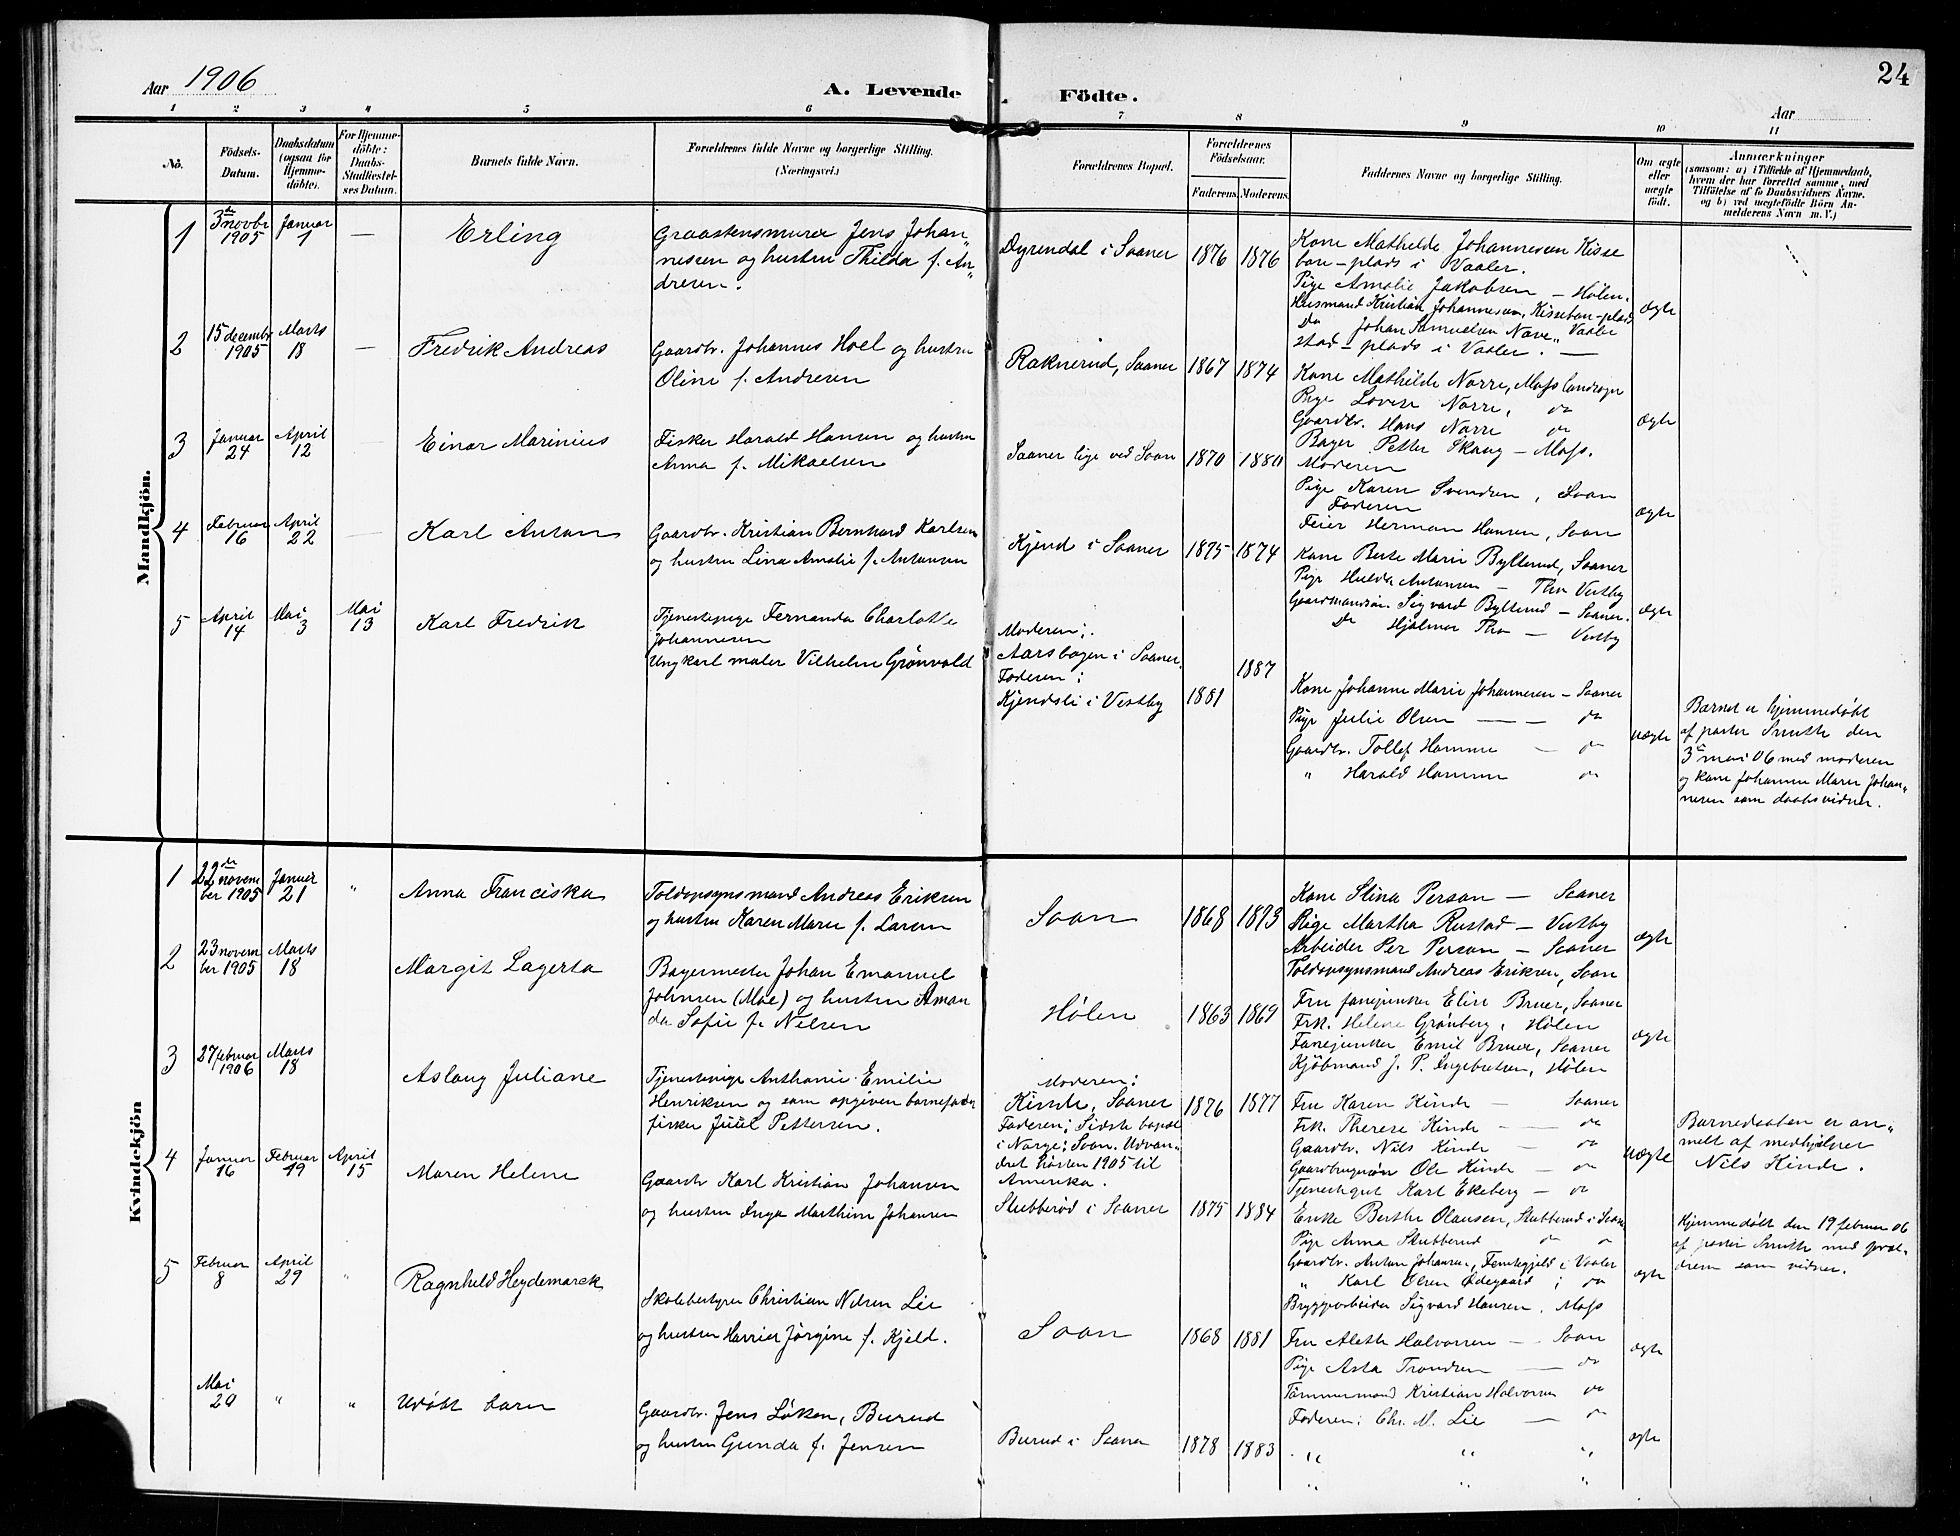 24
Aar 1906
A. Levende Födte.
Aar
1 2 3 4 5 6 7 8 9 10 11
Nò.
Födsels-Datum.
Daabsdatum (ogsaa for Hjemmedöbte).
For Hjemmedöbte: Daabs-Stadfæstelses Datum.
Barnets fulde Navn.
Forældrenes fulde Navne og borgerlige Stilling.
(Næringsvei.)
Forældrenes Bopæl.
Forældrenes Födselsaar.
Faderens. Moderens.
Faddernes Navne og borgerlige Stilling.
Om ægte eller uægte födt.
Anmærkninger
(saasom: a) i Tilfælde af Hjemmedaab,
hvem der har forrettet samme, med
Tilföielse af to Daabsvidners Navne,
og b) ved uægtefödte Börn An-
melderens Navn m. V.)
Mandkjön.
1
3de novbr 1905
Januar 1
—
Erling
Graastensmurer Jens Johan„
nessen og hustru Thilda f. An„
dresen.
Dyrendal i Saaner
1876
1876
Kone Mathilde Johannesen Kisse
bon-plads i Vaaler.
Pige Amalie Jakobsen – Hølen.
Husmand Kristian Johannesen, Kissebon-plads
Do Johan Samuelsen Nave„ Vaaler
stad-plads i Vaaler. —
ægte
2
15 decembr 1905
Marts 18
—
Fredrik Andreas
Gaardbr. Johannes Hoel og hustru
Oline f. Andresen
Raknerud, Saaner
1867
1874
Kone Mathilde Norre, Moss landsogn
Pige Lovise Norre, do
Gaardbr. Hans Norre do
Bager Petter Skaug – Moss.
ægte
3
Januar 24
April 12
—
Einar Marinius
Fisker Harald Hansen og hustru
Anna f. Mikaelsen
Saaner lige ved Soon
1870
1880
Moderen
Pige Karen Svendsen, Soon
Faderen
Feier Herman Hansen, Soon
ægte
4
Februar 16
April 22
—
Karl Anton
Gaardbr. Kristian Bernhard Karlsen
og hustru Lina Amalie f. Antonsen
Kjend i Saaner
1875
1874
Kone Berte Marie Bylterud, Saaner
Pige Hulda Antonsen – Thon Vestby
Gaardmandsøn Sigvard Bylterud – Saaner.
Do Hjalmar Thon — Vestby
ægte
5
April 14
Mai 3
Mai 13
Karl Fredrik
Tjenestepige Fernanda Charlotte
Johannesen
Ungkarl maler Vilhelm Grønvold
Moderen:
Aarsbogen i Saaner.
Faderen:
Kjendsli i Vestby
1881
1887
Kone Johanne Marie Johannesen – Saaner
Pige Julie Olsen — — do
Gaardbr. Tollef Hamme — do
„ Harald Hamme do
uægte
Barnet er hjemmedøbt
af pastor Smith den
3de mai 06 med moderen
og kone Johanne Marie Johan„
nesen som daabsvidner.
Kvindekjön
1
22de november 1905
Januar 21
„
Anna Franciska
Toldopsynsmand Andreas Eriksen
og hustru Karen Marie f. Larsen
Soon
1868
1873
Kone Stina Person — Saaner
Pige Martha Rustad — Vestby
Arbeider Per Person — Saaner
Toldopsynsmand Andreas Eriksen, Soon
ægte
2
23 november 1905
Marts 18
Margit Lagerta
Bagermester Johan Emanuel
Johnsen (Moe) og hustru Aman
da Sofie f. Nilsen
Hølen
1863
1869
Fru fanejunker Elise Bruer, Saaner
Frk. Helene Grønberg, Hølen
Fanejunker Emil Bruer, Saaner
Kjøbmand J. P. Ingebretsen, Hølen
ægte
3
27 februar 1906
Marts 18
Aslaug Juliane
Tjenestepige Anthonie Emilie
Henriksen og som opgiven barnefader
fisker Juul Pettersen.
Moderen:
Kinde, Saaner
Faderen; Sidste bopæl
i Norge; Soon. Udvan„
dret høsten 1905 til
Amerika.
1876
1877
Fru Karen Kinde — Saaner
Frk. Therese Kinde — do
Gaardbr. Nils Kinde — do
Gaardbrugersøn Ole Kinde – do
Tjenestegut Karl Ekeberg – do
uægte
Barnedaaben er an„
melt af medhjælper
Nils Kinde.
4
Januar 16
Februar 19
April 15
Maren Helene
Gaardbr Karl Kristian Johansen
og hustru Inga Marthine Johansen
Stubberød i Saaner
1875
1884
Enke Berthe Olausen, Stubberud i Saan
Pige Anna Stubberud do
Gaardbr. Anton Johansen, Femhjeld i Vaaler
„ Karl Olsen Ødegaard i do
Bryggearbeider Sigvard Hansen, Moss
ægte
Hjemmedøbt den 19 februar 06
af pastor Smith med foræl„
drene som vidner.
5
Februar 8
April 29
„
Ragnhild Heydemarck
Skolebestyrer Christian Nilsen Lie
og hustru Harrier Jørgine f. Kjeld.
Soon
1868
1881
Fru Alethe Halvorsen — Soon
Pige Asta Trondsen — do
Tømmermand Kristian Halvorsen do
Faderen: Chr. N. Lie — do
ægte
Mai 29
„
„
Udøbt barn
Gaardbr. Jens Løken, Burud
og hustru Gunda f. Jensen
Burud i Saaner
1878
1883
„ „ „
„
ægte